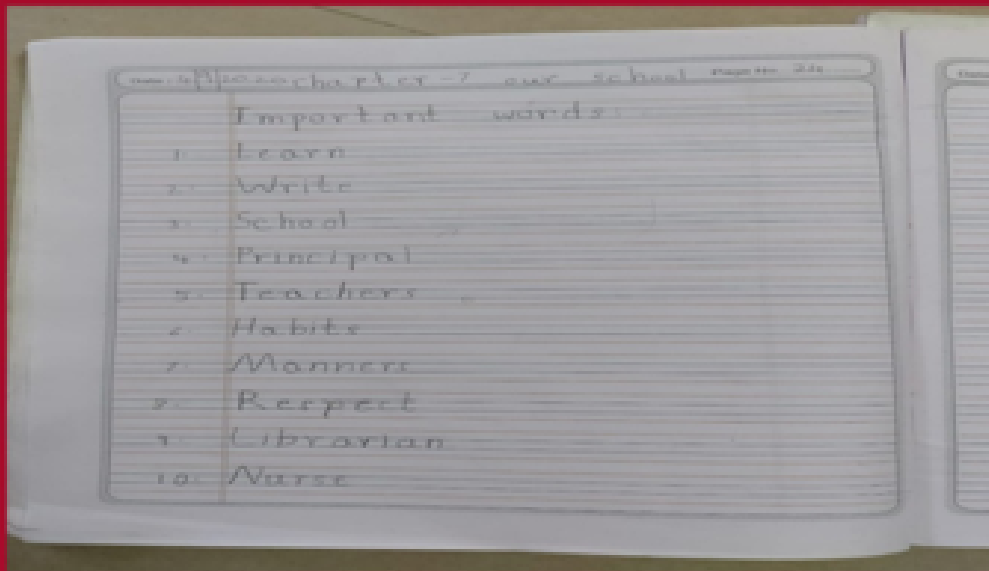 chapter-7 our school Page No.
Important words:
1. Learn
2. Write
3. School
4. Principal
5. Teachers
6. Habits
7. Manners
8. Respect
9. Librarian
10. Nurse